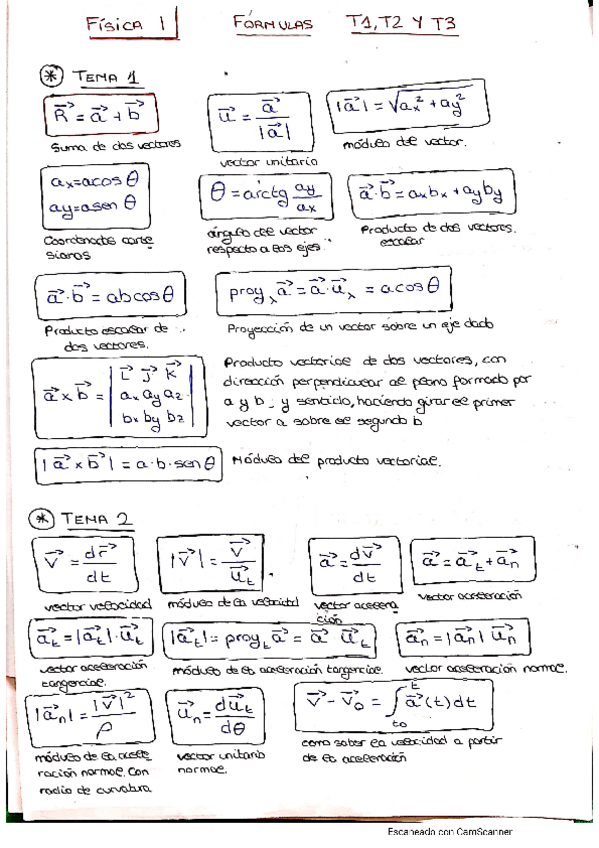 Física 1 FÓRMULAS T1, T2 Y T3
* TEMA 1
R⃗ = a⃗ + b⃗
Suma de dos vectores
u⃗ = a⃗ / |a⃗|
vector unitario
|a⃗| = √(ax² + ay²)
módulo del vector.
ax = a cos θ
ay = a sen θ
Coordenadas carte
sianas
θ = arctg ay/ax
ángulo del vector
respecto a los ejes.
a⃗·b⃗ = axbx + ayby
Producto de dos vectores.
escalar
a⃗·b⃗ = ab cos θ
Producto escalar de
dos vectores.
proyₓ a⃗ = a⃗·u⃗ₓ = a cos θ
Proyección de un vector sobre un eje dado
a⃗ x b⃗ = | i⃗ j⃗ k⃗ |
| ax ay az |
| bx by bz |
Producto vectorial de dos vectores, con
dirección perpendicular al plano formado por
a y b, y sentido, haciendo girar el primer
vector a sobre el segundo b
|a⃗ x b⃗| = a·b·sen θ
Módulo del producto vectorial.
* TEMA 2
v⃗ = dr⃗/dt
vector velocidad
|v⃗| = v⃗/u⃗t
módulo de la velocidad
a⃗ = dv⃗/dt
vector acelera
ción
a⃗ = a⃗t + a⃗n
vector aceleración
a⃗t = |a⃗t|·u⃗t
vector aceleración
tangencial.
|a⃗t| = proyt a⃗ = a⃗ u⃗t
módulo de la aceleración tangencial.
a⃗n = |a⃗n| u⃗n
vector aceleración normal.
|a⃗n| = |v⃗|²/ρ
módulo de la acele
ración normal. Con
radio de curvatura
u⃗n = du⃗t/dθ
vector unitario
normal.
v⃗ - v⃗0 = ∫ₜ₀ᵗ a⃗(t)dt
como saber la velocidad a partir
de la aceleración
Escaneado con CamScanner